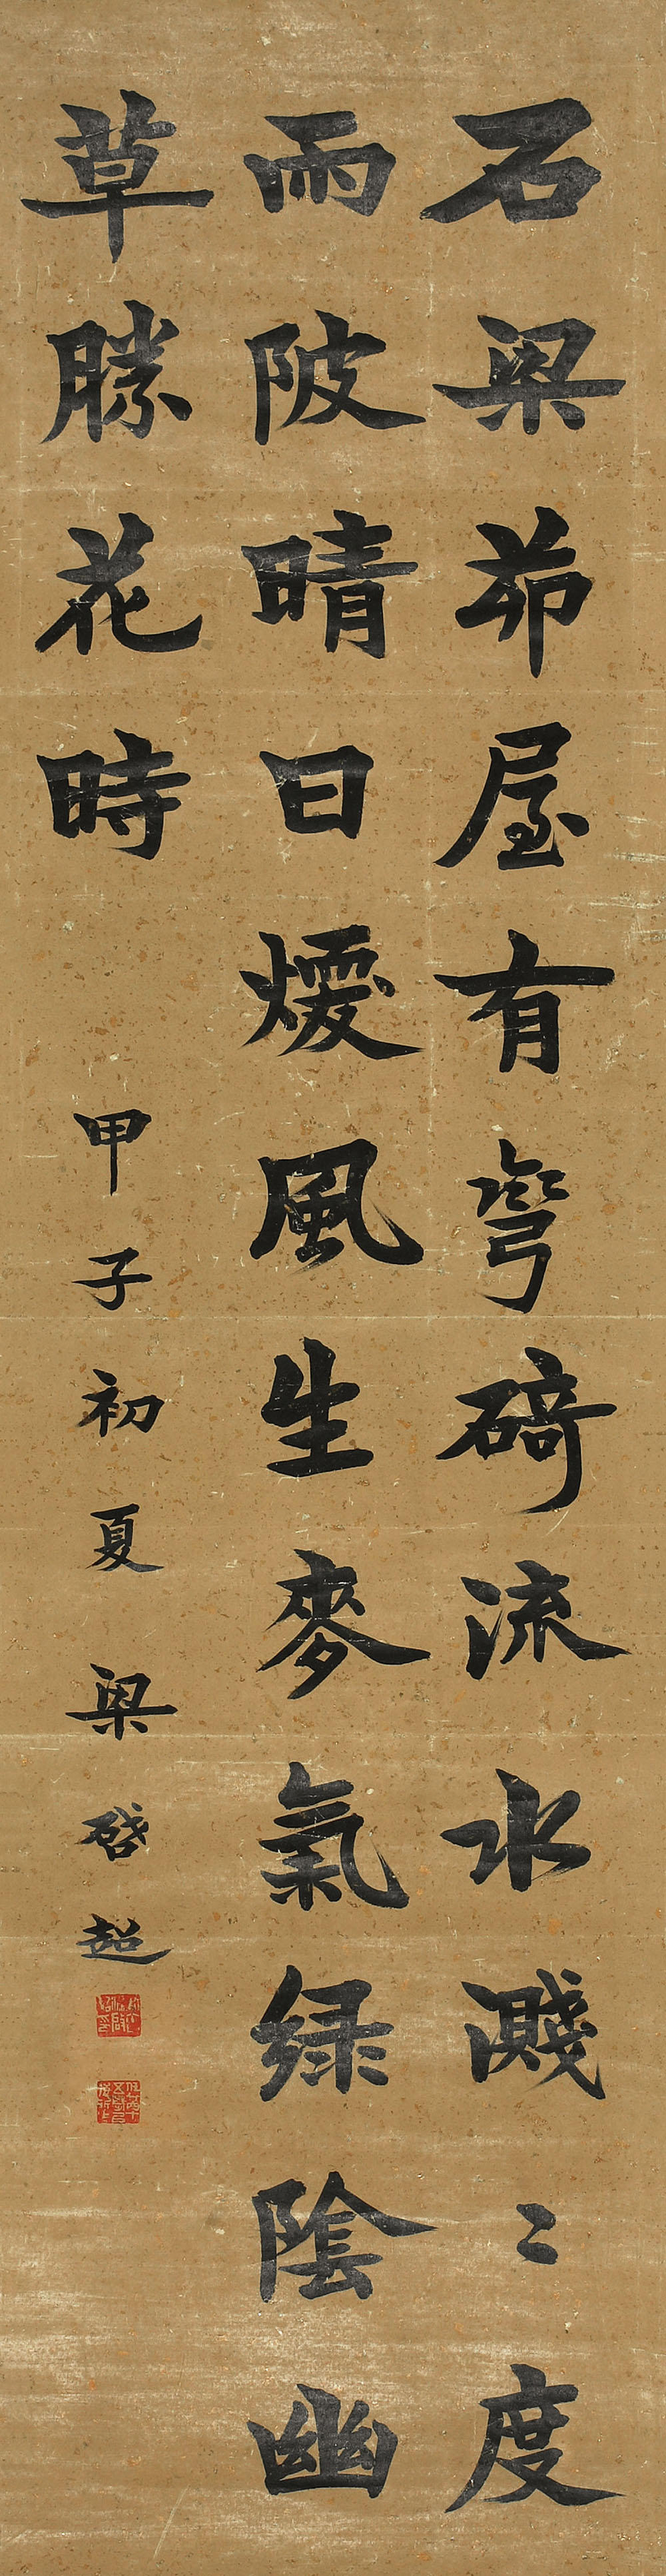 石梁茆屋有彎碕流水濺〻度
兩陂晴日煖風生麥氣緑陰幽
草勝花時
甲子初夏 梁啓超